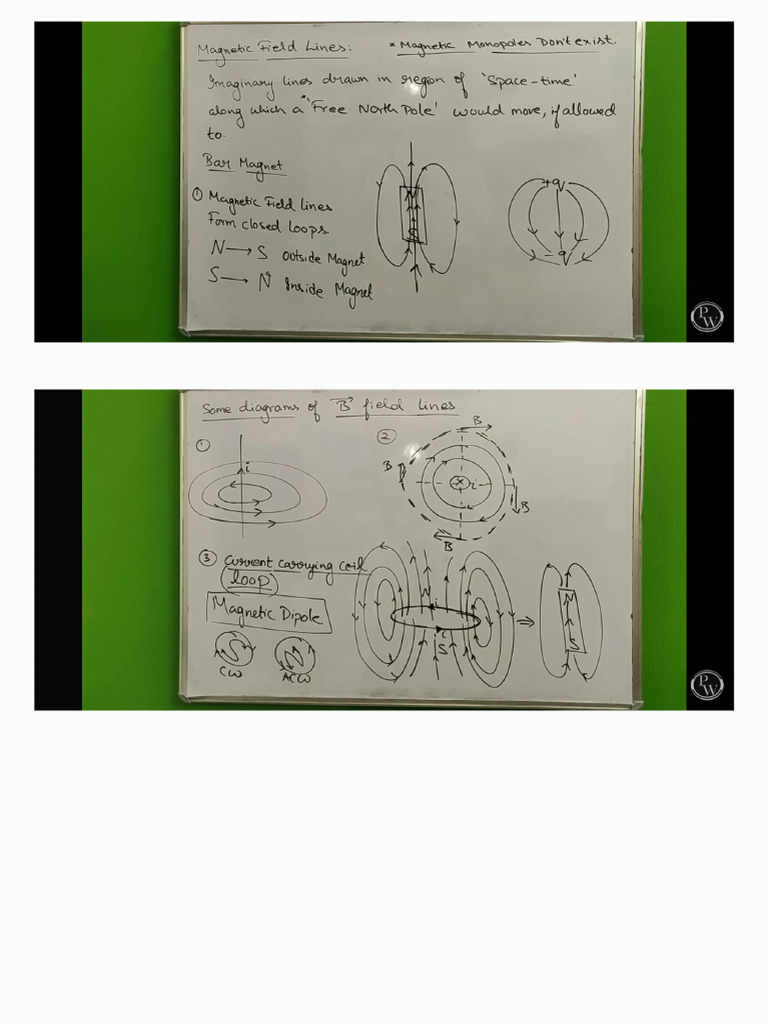 Magnetic Field Lines: * Magnetic Monopoles Don't exist.
Imaginary lines drawn in region of 'Space-time'
along which a 'Free North Pole' would move, if allowed
to.
Bar Magnet
① Magnetic Field lines
Form closed loops
N → S Outside Magnet
S → N Inside Magnet
N
S
+q
-q
PW
Some diagrams of B field lines
①
i
②
B
B
x i
B
B
③ Current carrying coil
loop
Magnetic Dipole
S
CW
N
ACW
N
i
i
S
⇒
N
S
PW